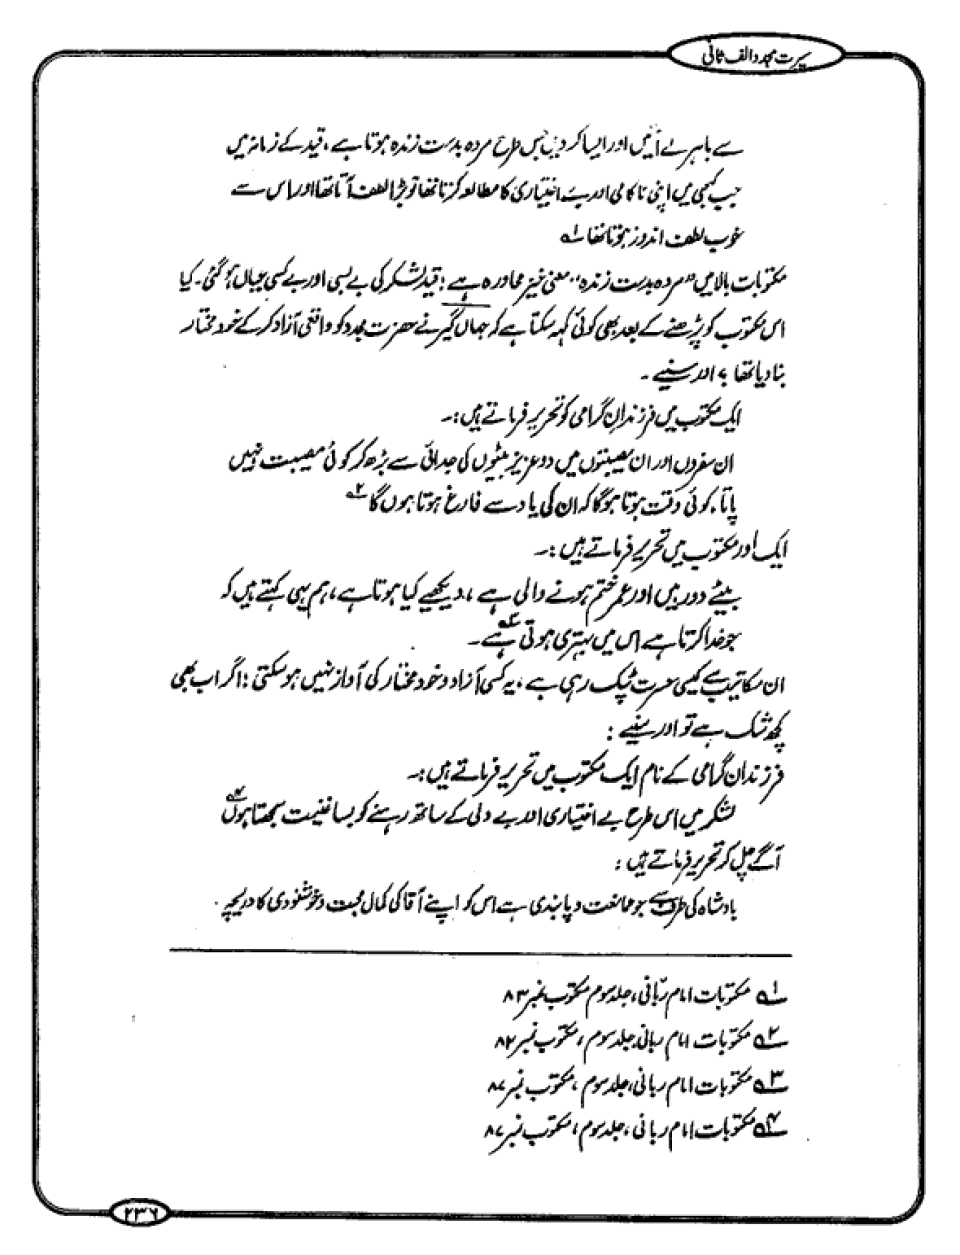 سیرت مجدد الف ثانی
سے باہر لے آئیں اور ایسا کر دیں جس طرح مردہ بدست زندہ ہوتا ہے، قید کے زمانہ میں
جب کبھی میں اپنی ناکامی اور بے اختیاری کا مطالعہ کرتا تھا تو بڑا لطف آتا تھا اور اس سے
خوب لطف اندوز ہوتا تھا ۱؎
مکتوبات بالا میں "مردہ بدست زندہ" معنی خیز محاورہ ہے؛ قید لشکر کی بے بسی اور بے کسی عیاں ہو گئی۔ کیا
اس مکتوب کو پڑھنے کے بعد بھی کوئی کہہ سکتا ہے کہ جہاں گیر نے حضرت مجدد کو واقعی آزاد کر کے خود مختار
بنا دیا تھا؟ اور سنیے۔
ایک مکتوب میں فرزندان گرامی کو تحریر فرماتے ہیں:۔
ان سفروں اور ان مصیبتوں میں دو عزیز بیٹوں کی جدائی سے بڑھ کر کوئی مصیبت نہیں
پاتا، کوئی وقت ہوتا ہوگا کہ ان کی یاد سے فارغ ہوتا ہوں گا ۲؎
ایک اور مکتوب میں تحریر فرماتے ہیں:۔
بیٹے دور ہیں اور عمر ختم ہونے والی ہے، دیکھیے کیا ہوتا ہے، ہم یہی کہتے ہیں کہ
جو خدا کرتا ہے اس میں بہتری ہوتی ہے ۳؎۔
ان مکاتیب سے کیسی حسرت ٹپک رہی ہے، یہ کسی آزاد و خود مختار کی آواز نہیں ہو سکتی؛ اگر اب بھی
کچھ شک ہے تو اور سنیے:
فرزندان گرامی کے نام ایک مکتوب میں تحریر فرماتے ہیں:۔
لشکر میں اس طرح بے اختیاری اور بے دلی کے ساتھ رہنے کو بسا غنیمت سمجھتا ہوں ۴؎
آگے چل کر تحریر فرماتے ہیں:
بادشاہ کی طرف سے جو ممانعت و پابندی ہے اس کو اپنے آقا کی کمال محبت و خوشنودی کا دریچہ
۱؎ مکتوبات امام ربّانی، جلد سوم مکتوب نمبر ۸۳
۲؎ مکتوبات امام ربانی جلد سوم، مکتوب نمبر ۸۲
۳؎ مکتوبات امام ربانی، جلد سوم، مکتوب نمبر ۸۷
۴؎ مکتوبات امام ربانی، جلد سوم، مکتوب نمبر ۸۷
۲۳۶